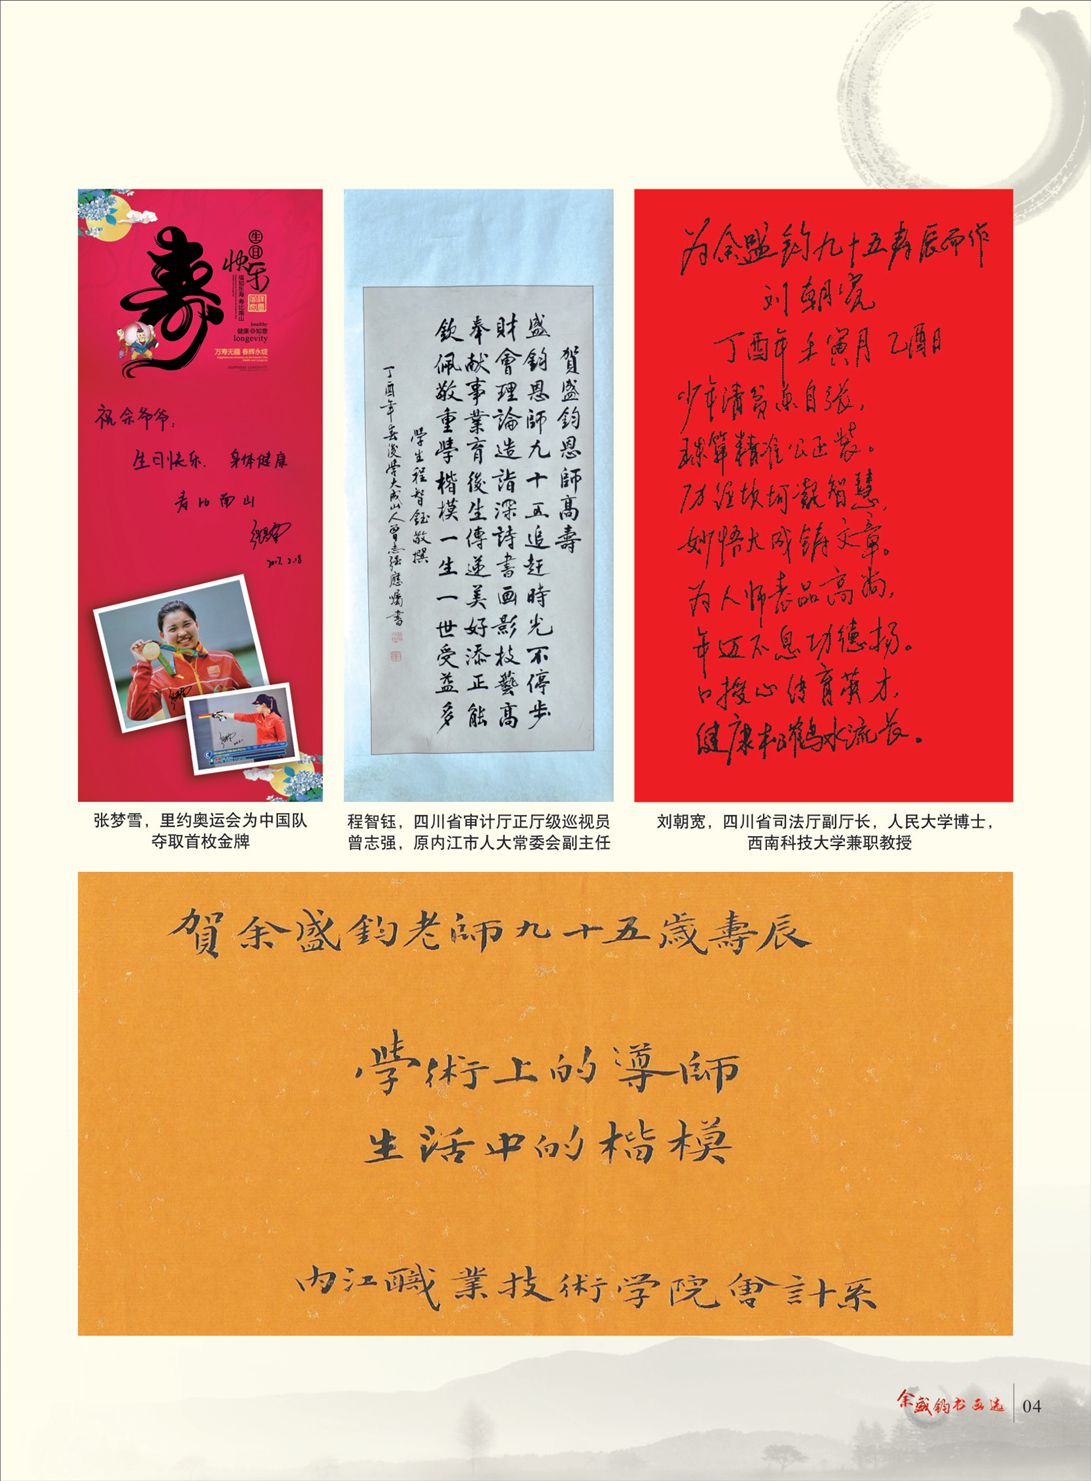 寿
生日
快乐
福如东海 寿比南山
healthy
健康如意
longevity
万寿无疆 春晖永绽
祝余爷爷：
生日快乐、身体健康
寿比南山
2017.2.18
賀盛鈞恩師高壽
盛鈞恩師九十五追赶時光不停步
財會理論造詣深詩書画影技藝高
奉献事業育後生傳遞美好添正能
欽佩敬重學楷模一生一世受益多
學生程智鈺敬撰
丁酉年春後學大成山人曾志强應嘱書
为余盛钧九十五寿辰而作
刘朝宽
丁酉年壬寅月乙酉日
少年清贫志自强，
珠算精准公正装。
历经坎坷凝智慧，
妙悟大成铸文章。
为人师表品高尚，
年迈不息功德扬。
口授心传育英才，
健康松鹤水流长。
张梦雪，里约奥运会为中国队
夺取首枚金牌
程智钰，四川省审计厅正厅级巡视员
曾志强，原内江市人大常委会副主任
刘朝宽，四川省司法厅副厅长，人民大学博士，
西南科技大学兼职教授
賀余盛鈞老師九十五歲壽辰
學術上的導師
生活中的楷模
内江職業技術学院會計系
余盛钧书画选
04